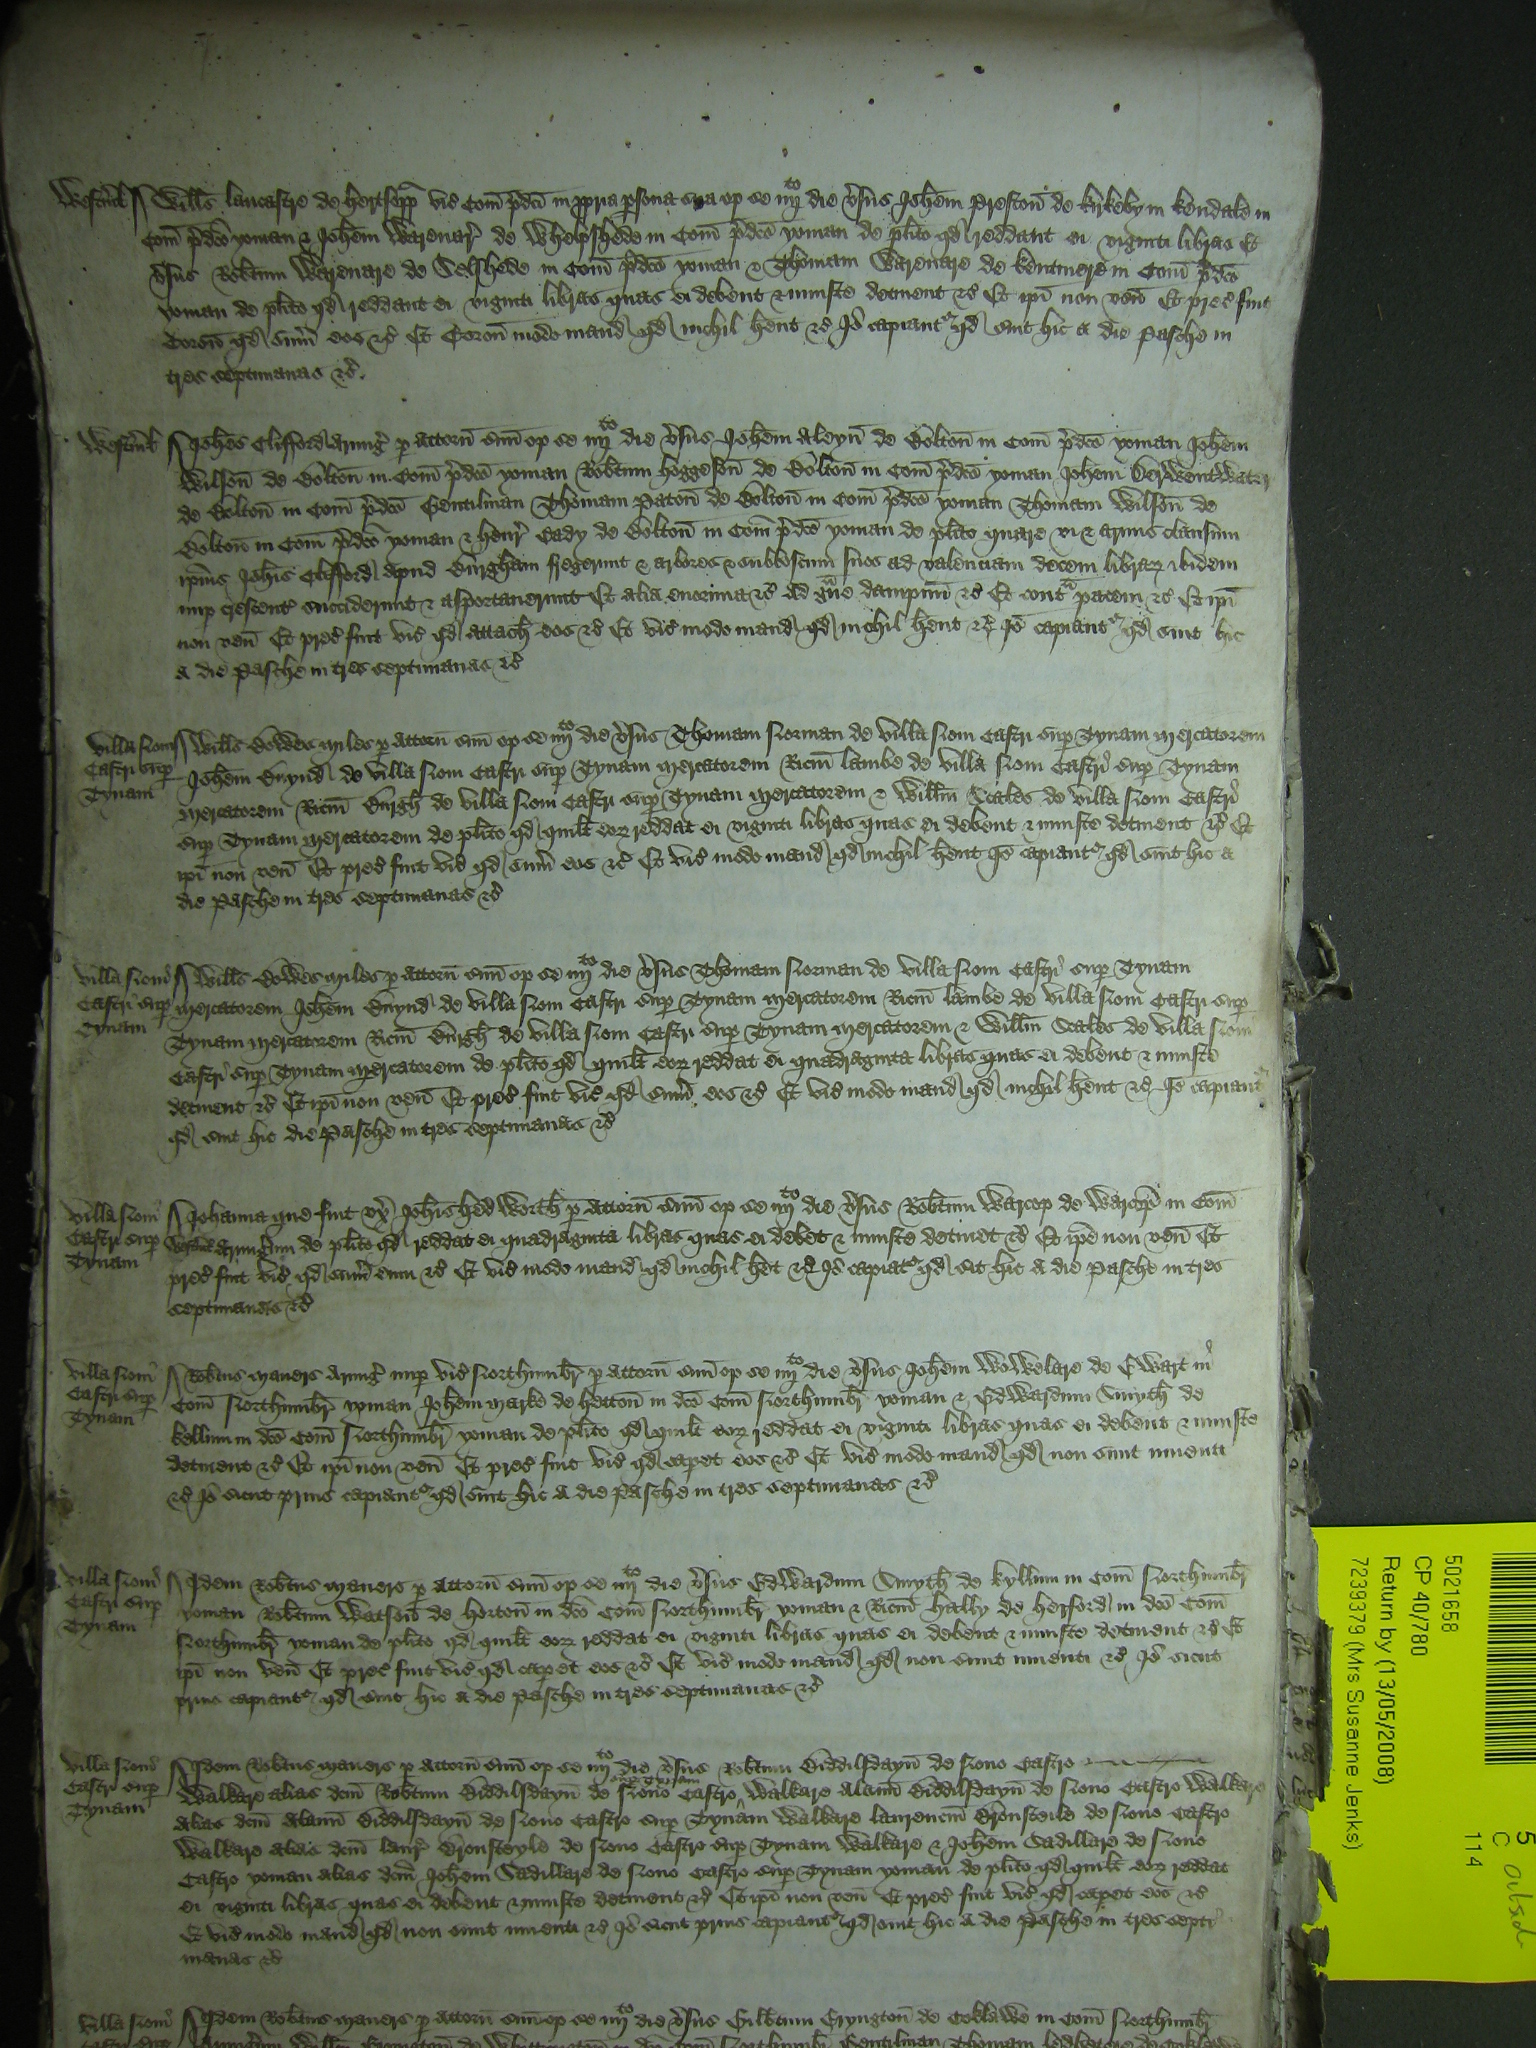 Westm̄l Wills lancastre de hertsopp vic Com̄ p̄dc̄i in ppria psona sua op se iiijto die v̄sus Joh̄em Preston̄ de kyrkeby in kendale in
Com̄ p̄dc̄o yoman & Joh̄em Warenar̄ de Whelpshede in Com̄ p̄dc̄o yoman de pl̄ito qd reddant ei viginti libras Et
v̄sus Rob̄tum Warenare de Selshede in Com̄ p̄dc̄o yoman & Thomam Warenare de kentmere in Com̄ p̄dc̄o
yoman de pl̄ito qd reddant ei viginti libras quas ei debent & iniuste detinent &c̄ Et ip̄i non ven̄ Et prec̄ fuit
Coron̄ qd sum̄ eos &c̄ Et Coron̄ modo mand qd nichil h̄ent &c̄ Jō capiantr qd sint hic a die Pasche in
tres septimanas &c̄.
Westm̄l Joh̄es Clifford Armig̃ p attorn̄ suū op se iiijto die v̄sus Joh̄em Aleyn̄ de Bolton̄ in Com̄ p̄dc̄o yoman Joh̄em
Wilson̄ de Bolton̄ in Com̄ p̄dc̄o yoman Rob̄tum hoggeson̄ de Bolton̄ in Com̄ p̄dc̄o yoman Joh̄em Derwentwater
de Bolton̄ in Com̄ p̄dc̄o Gentilman Thomam Paton̄ de Bolton̄ in Com̄ p̄dc̄o yoman Thomam Wilson̄ de
Bolton̄ in Com̄ p̄dc̄o yoman & henr̄ Cady de Bolton̄ in Com̄ p̄dc̄o yoman de pl̄ito quare vi & armis clausum
ip̄ius Joh̄is Clifford apud Burgham fregerunt & arbores & subboscum suos ad valenciam decem librar̄ ibidem
nup crescent̄ succiderunt & asportauerunt Et alia enormia &c̄ Ad gue dampnū &c̄ Et contra pacem &c̄ Et ip̄i
non ven̄ Et prec̄ fuit vic̄ qd attach̄ eos &c̄ Et vic̄ modo mand qd nichil h̄ent &c̄ Jō capiantr qd sint hic
a die Pasche in tres septimanas &c̄
Villa Noui Castri sup Tynam Wills Bowes miles p attorn̄ suū op se iiijto die v̄sus Thomam Norman de villa Noui Castri sup Tynam mercatorem
Joh̄em Bnynd de villa Noui Castri sup Tynam mercatorem Ric̄m lambe de villa Noui Castri sup Tynam
mercatorem Ric̄m Burgh̄ de villa Noui Castri sup Tynam mercatorem & Will̄m Scales de villa Noui Castri
sup Tynam mercatorem de pl̄ito qd quil̄t eor̄ reddat ei viginti libras quas ei debent & iniuste detinent &c̄ Et
ip̄i non ven̄ Et prec̄ fuit vic̄ qd sum̄ eos &c̄ Et vic̄ modo mand qd nichil h̄ent Jō capiantr qd sint hic a
die Pasche in tres septimanas &c̄
Villa Noui Castri sup Tynam Wills Bowes miles p attorn̄ suū op se iiijto die v̄sus Thomam Norman de villa Noui Castri sup Tynam
mercatorem Joh̄em Bnynd de villa Noui Castri sup Tynam mercatorem Ric̄m lambe de villa Noui Castri sup
Tynam mercatorem Ric̄m Burgh̄ de villa Noui Castri sup Tynam mercatorem & Will̄m Scales de villa Noui
Castri sup Tynam mercatorem de pl̄ito qd quil̄t eor̄ reddat ei quadraginta libras quas ei debent & iniuste
detinent &c̄ Et ip̄i non ven̄ Et prec̄ fuit vic̄ qd sum̄ eos &c̄ Et vic̄ modo mand qd nichil h̄ent &c̄ Jō capiantr
qd sint hic die Pasche in tres septimanas &c̄
Villa Noui Castri sup Tynam Johanna que fuit vx̄ Joh̄is hedworth̄ p attorn̄ suū op se iiijto die v̄sus Rob̄tum Warcop de Warcop̄ in Com̄
Westm̄l Armig̃um de pl̄ito qd reddat ei quadraginta libras quas ei debet & iniuste detinet &c̄ Et ip̄e non ven̄ Et
prec̄ fuit vic̄ qd sum̄ eum &c̄ Et vic̄ modo mand qd nichil h̄et &c̄ Jō capiatr qd sit hic a die Pasche in tres
septimanas &c̄
Villa Noui Castri sup Tynam Rob̄tus maners Armig̃ nup vic̄ Northumbr̄ p attorn̄ suū op se iiijto die v̄sus Joh̄em Wolwelare de Ewart in
Com̄ Northumbr̄ yoman Joh̄em marke de hetton̄ in dc̄o Com̄ Northumbr̄ yoman & Edwardum Smyth̄ de
kellum in dc̄o Com̄ Northumbr̄ yoman de pl̄ito qd quil̄t eor̄ reddat ei viginti libras quas ei debent & iniuste
detinent &c̄ Et ip̄i non ven̄ Et prec̄ fuit vic̄ qd capet eos &c̄ Et vic̄ modo mand qd non sunt inuenti
&c̄ Jō sicut prius capiantr qd sint hic a die Pasche in tres septimanas &c̄
Villa Noui Castri sup Tynam Idem Rob̄tus maners p attorn̄ suū op se iiijto die v̄sus Edwardum Smyth̄ de kyllum in Com̄ Northumbr̄
yoman Rob̄tum Watson̄ de horton̄ in dc̄o Com̄ Northumbr̄ yoman & Ric̄m hally de herford in dc̄o Com̄
Northumbr̄ yoman de pl̄ito qd quil̄t eor̄ reddat ei viginti libras quas ei debent & iniuste detinent &c̄ Et
ip̄i non ven̄ Et prec̄ fuit vic̄ qd capet eos &c̄ Et vic̄ modo mand qd non sunt inuenti &c̄ Jō sicut
prius capiantr qd sint hic a die Pasche in tres septimanas &c̄
Villa Noui Castri sup Tynam Idem Rob̄tus maners p attorn̄ suū op se iiijto die v̄sus Rob̄tum Biddilsdayn̄ de Nouo Castro
Walkare alias dc̄m Rob̄tum Biddilsdayn̄ de Nouo Castro sup Tynam Walkare Alanū Biddilsdayn̄ de Nouo Castro Walkare
alias dc̄m Alanū Biddilsdayn̄ de Nouo Castro sup Tynam Walkare laurenciū Bronsteile de Nouo Castro
Walkare alias dc̄m laur̄ Bronsteyle de Nouo Castro sup Tynam Walkare & Joh̄em Sadillare de Nouo
Castro yoman alias dc̄m Joh̄em Sadillare de Nouo Castro sup Tynam yoman de pl̄ito qd quil̄t eor̄ reddat
ei viginti libras quas ei debent & iniuste detinent &c̄ Et ip̄i non ven̄ Et prec̄ fuit vic̄ qd capet eos &c̄
Et vic̄ modo mand qd non sunt inuenti &c̄ Jō sicut prius capiantr qd sint hic a die Pasche in tres septi
manas &c̄
Villa Noui Idem Rob̄tus maners p attorn̄ suū op se iiijto die v̄sus Gilb̄tum Eryngton̄ de Coklawe in Com̄ Northumbr̄
5021658
CP 40/780
Return by (13/05/2008)
7239379 (Mrs Susanne Jenks)
5
C
114